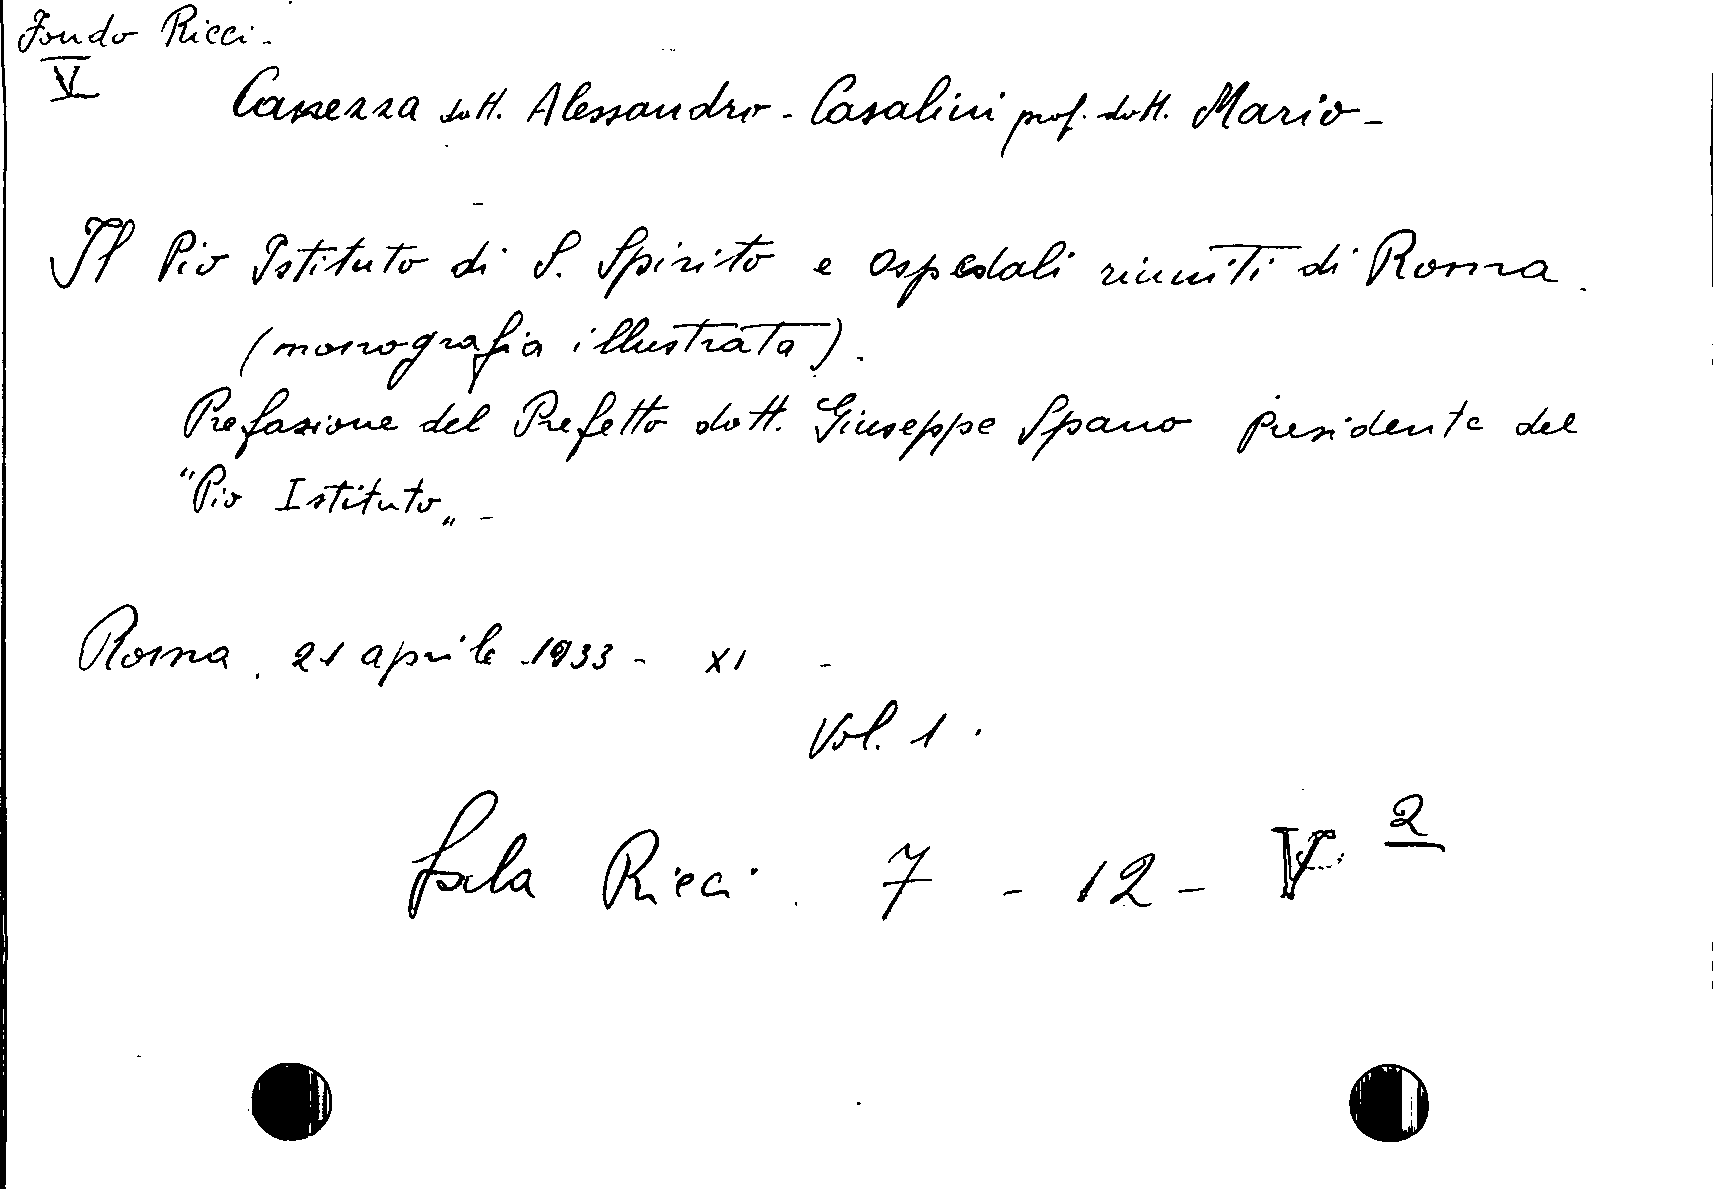 Fondo Ricci -
V
Canezza dott. Alessandro - Casalini prof. dott. Mario -
Il Pio Istituto di S. Spirito e Ospedali riuniti di Roma.
(monografia illustrata).
Prefazione del Prefetto dott. Giuseppe Spano Presidente del
"Pio Istituto„ -
Roma. 21 aprile 1933 - XI -
Vol. 1.
Sala Ricci. 7 - 12 - V 2